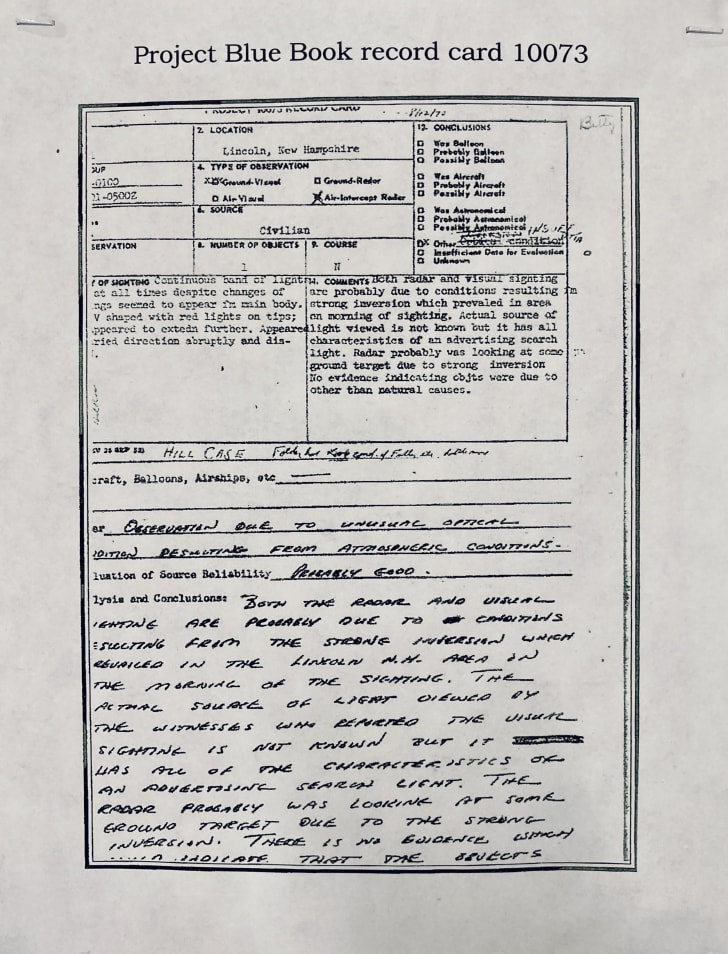 Project Blue Book record card 10073
PROJECT 10073 RECORD CARD
Betty
2. LOCATION
Lincoln, New Hampshire
12. CONCLUSIONS
□ Was Balloon
□ Probably Balloon
□ Possibly Balloon
□ Was Aircraft
□ Probably Aircraft
□ Possibly Aircraft
□ Was Astronomical
□ Probably Astronomical
□ Possibly Astronomical
Other condition
□ Insufficient Data for Evaluation
□ Unknown
OUP
-0100
-0500Z
4. TYPE OF OBSERVATION
Ground-Visual □ Ground-Radar
□ Air-Visual Air-Intercept Radar
6. SOURCE
Civilian
SERVATION
8. NUMBER OF OBJECTS
1
9. COURSE
N
OF SIGHTING Continuous band of lights
at all times despite changes of
ngs seemed to appear fm main body.
V shaped with red lights on tips;
ppeared to extedn further. Appeared
ried direction abruptly and dis-
COMMENTS Both radar and visual sighting
are probably due to conditions resulting fm
strong inversion which prevaled in area
on morning of sighting. Actual source of
light viewed is not known but it has all
characteristics of an advertising search
light. Radar probably was looking at some
ground target due to strong inversion
No evidence indicating objts were due to
other than natural causes.
HILL CASE
craft, Balloons, Airships, etc
er OBSERVATION DUE TO UNUSUAL OPTICAL
NDITION RESULTING FROM ATMOSPHERIC CONDITIONS.
luation of Source Reliability PROBABLY GOOD.
lysis and Conclusions: BOTH THE RADAR AND VISUAL
IGHTING ARE PROBABLY DUE TO CONDITIONS
ESULTING FROM THE STRONG INVERSION WHICH
REVAILED IN THE LINCOLN N.H. AREA ON
THE MORNING OF THE SIGHTING. THE
ACTUAL SOURCE OF LIGHT VIEWED BY
THE WITNESSES WHO REPORTED THE VISUAL
SIGHTING IS NOT KNOWN BUT IT
HAS ALL OF THE CHARACTERISTICS OF
AN ADVERTISING SEARCH LIGHT. THE
RADAR PROBABLY WAS LOOKING AT SOME
GROUND TARGET DUE TO THE STRONG
INVERSION. THERE IS NO EVIDENCE WHICH
INDICATE THAT THE OBJECTS